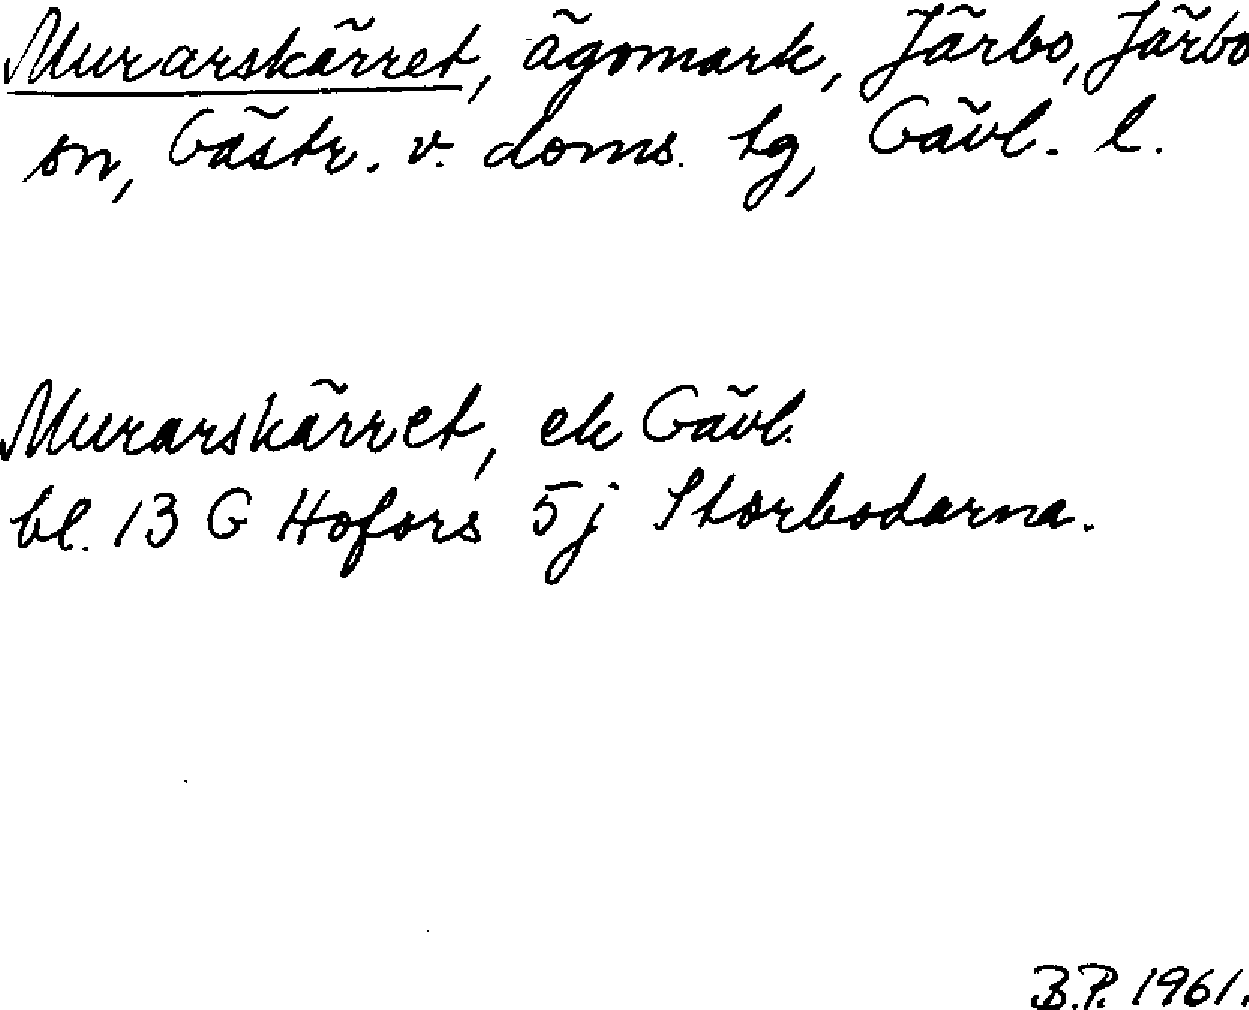 Murarskärret, ägomark, Järbo, Järbo
sn, Gästr. v. doms. tg, Gävl. l.
Murarskärret, ek Gävl.
bl. 13 G Hofors 5j Storbodarna.
B.P. 1961.